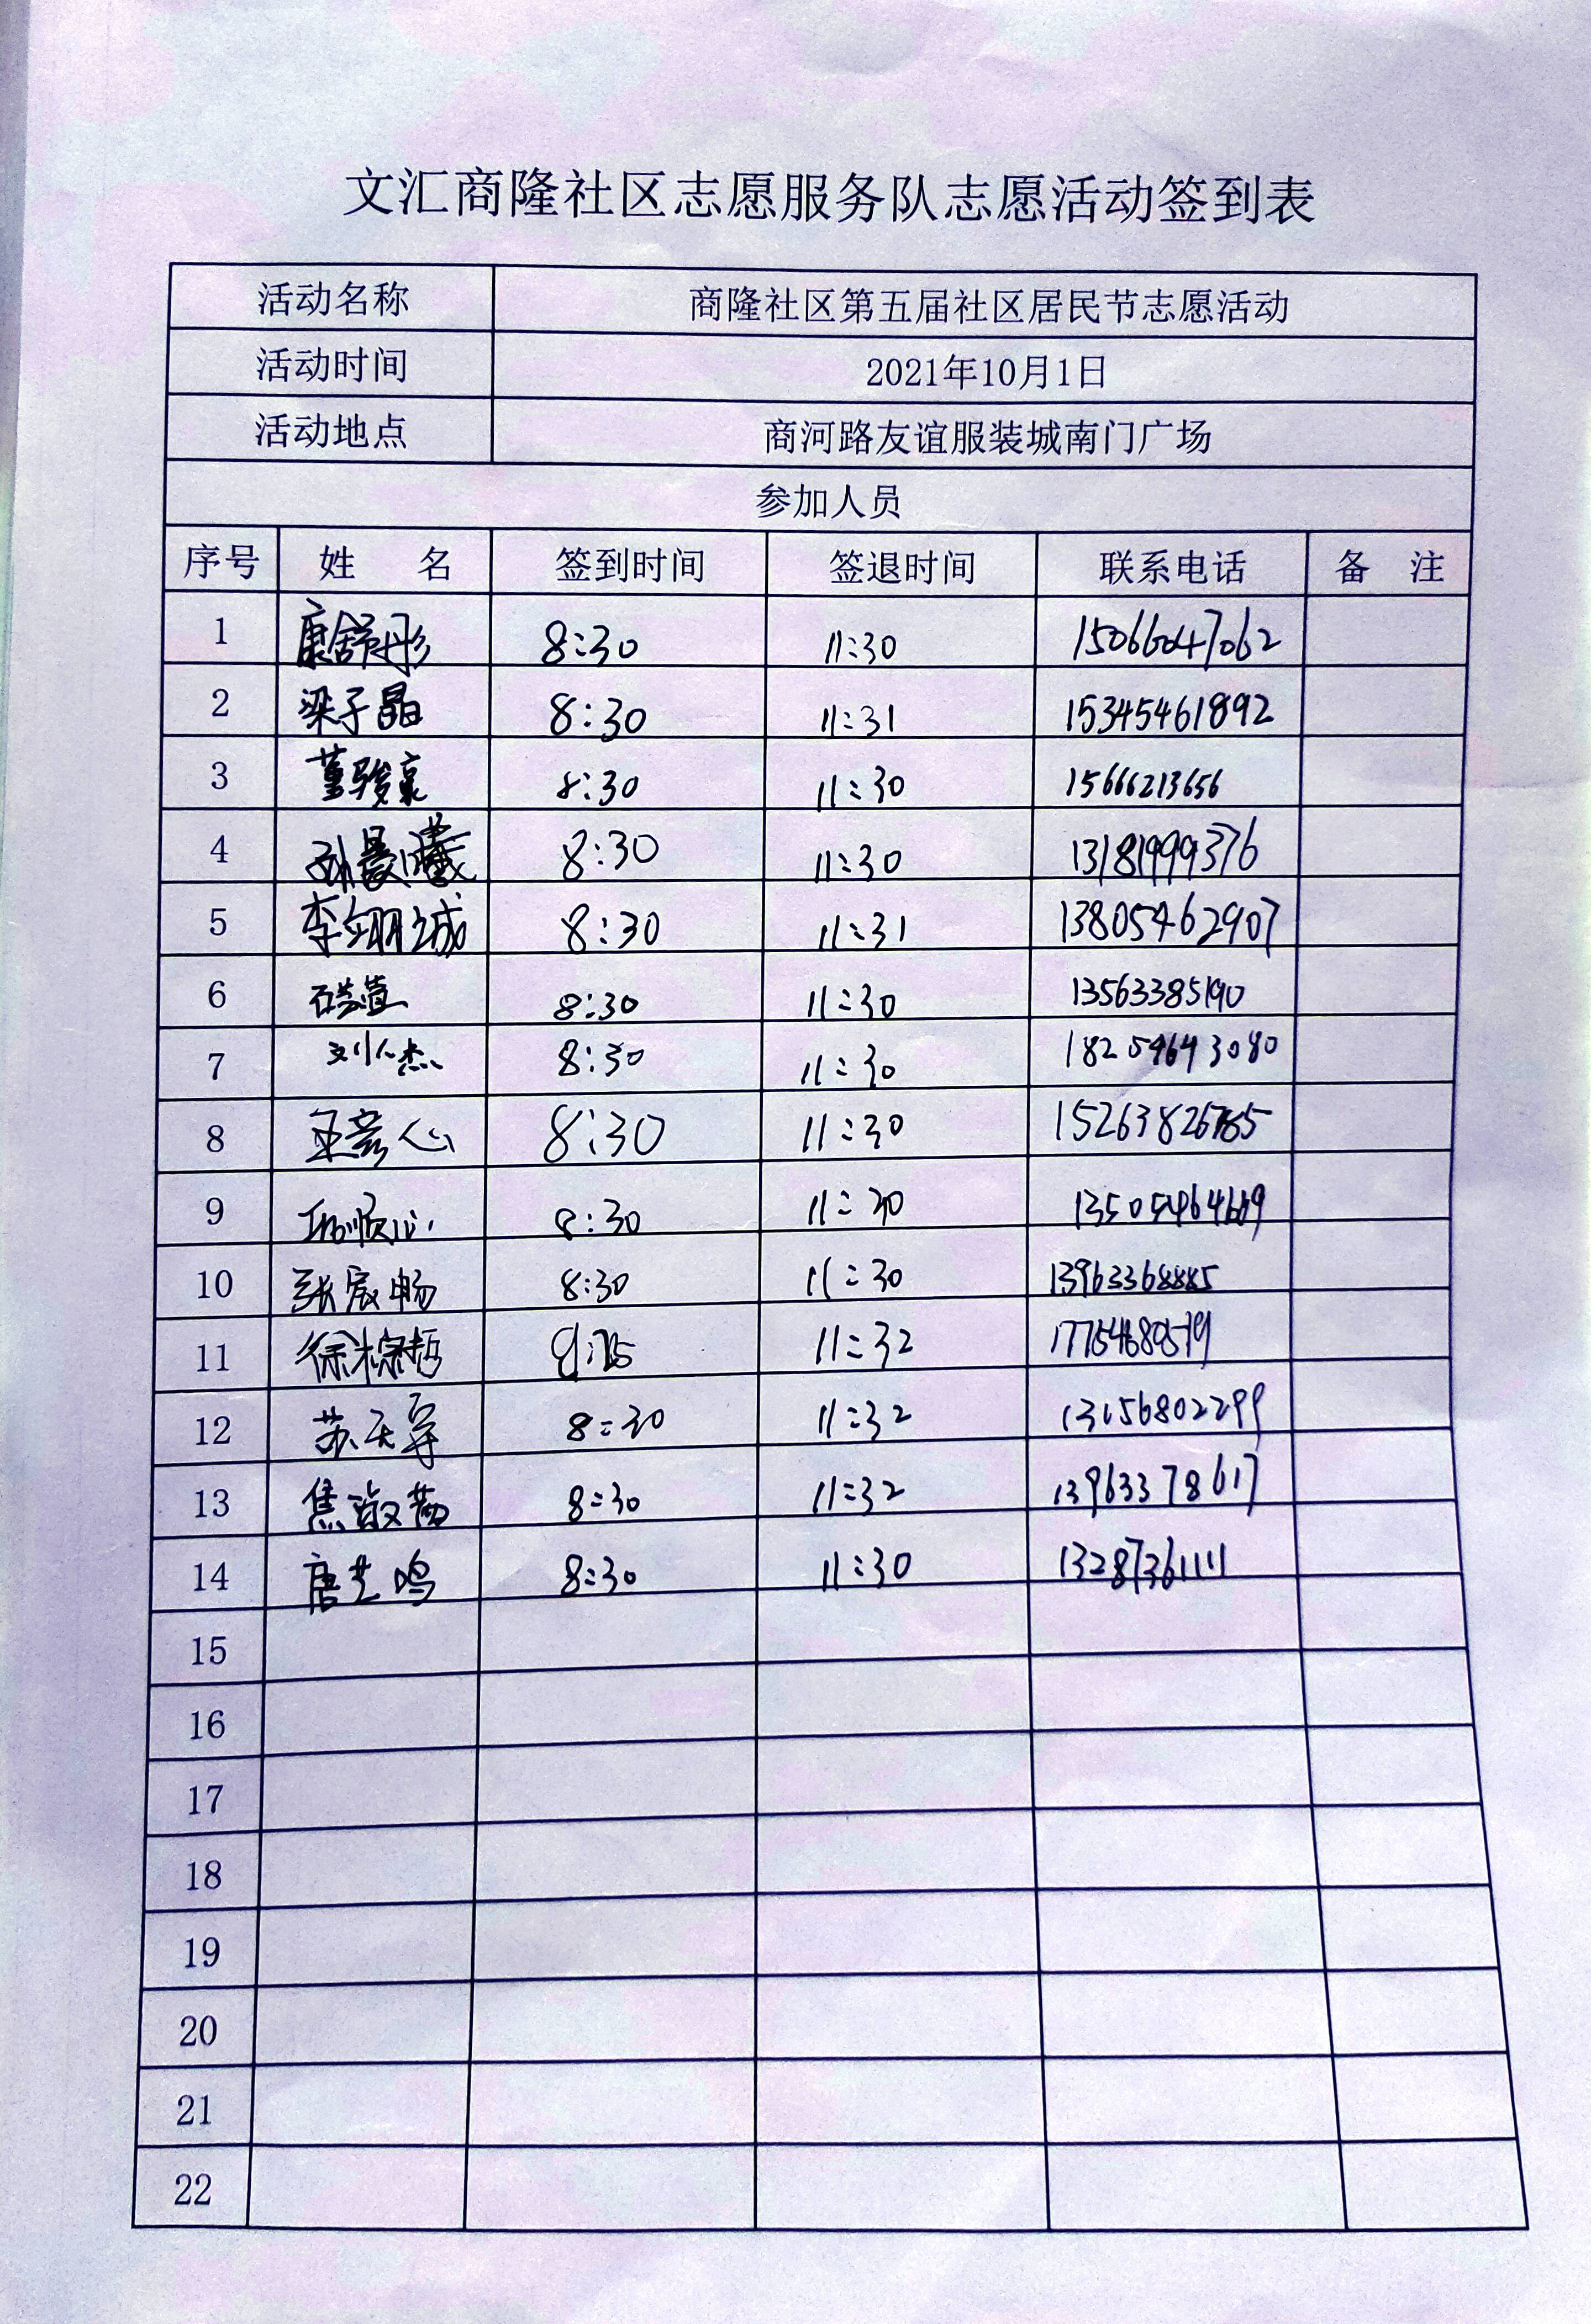 文汇商隆社区志愿服务队志愿活动签到表
活动名称 商隆社区第五届社区居民节志愿活动
活动时间 2021年10月1日
活动地点 商河路友谊服装城南门广场
参加人员
序号 姓 名 签到时间 签退时间 联系电话 备 注
1 康舒彤 8:30 11:30 15066047062
2 梁子晶 8:30 11:31 15345461892
3 董骏豪 8:30 11:30 15666213656
4 孙晨曦 8:30 11:30 13181999376
5 李翊城 8:30 11:31 13805462907
6 8:30 11:30 13563385190
7 刘人杰 8:30 11:30 18254643080
8 王彦心 8:30 11:30 15263826785
9 8:30 11:30
10 张宸畅 8:30 11:30 13963368885
11 徐梓哲 11:32
12 苏天宇 8:30 11:32 13156802299
13 焦淑茜 8:30 11:32 13963378617
14 唐艺鸣 8:30 11:30 13287361111
15
16
17
18
19
20
21
22